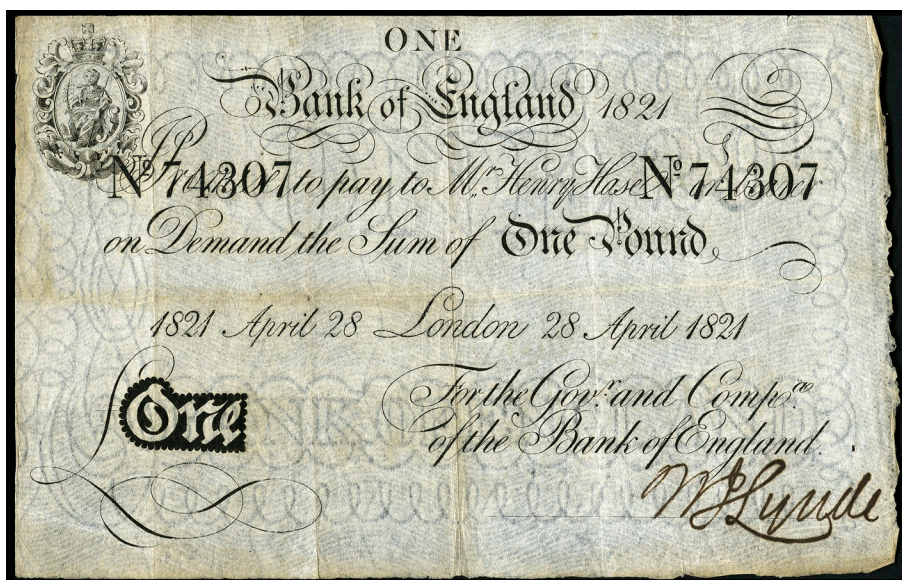 ONE
Bank of England 1821
Nº 74307 to pay to Mr. Henry Hase Nº 74307
on Demand the Sum of One Pound
1821 April 28 London 28 April 1821
For the Govr. and Compa.
£ One
of the Bank of England.